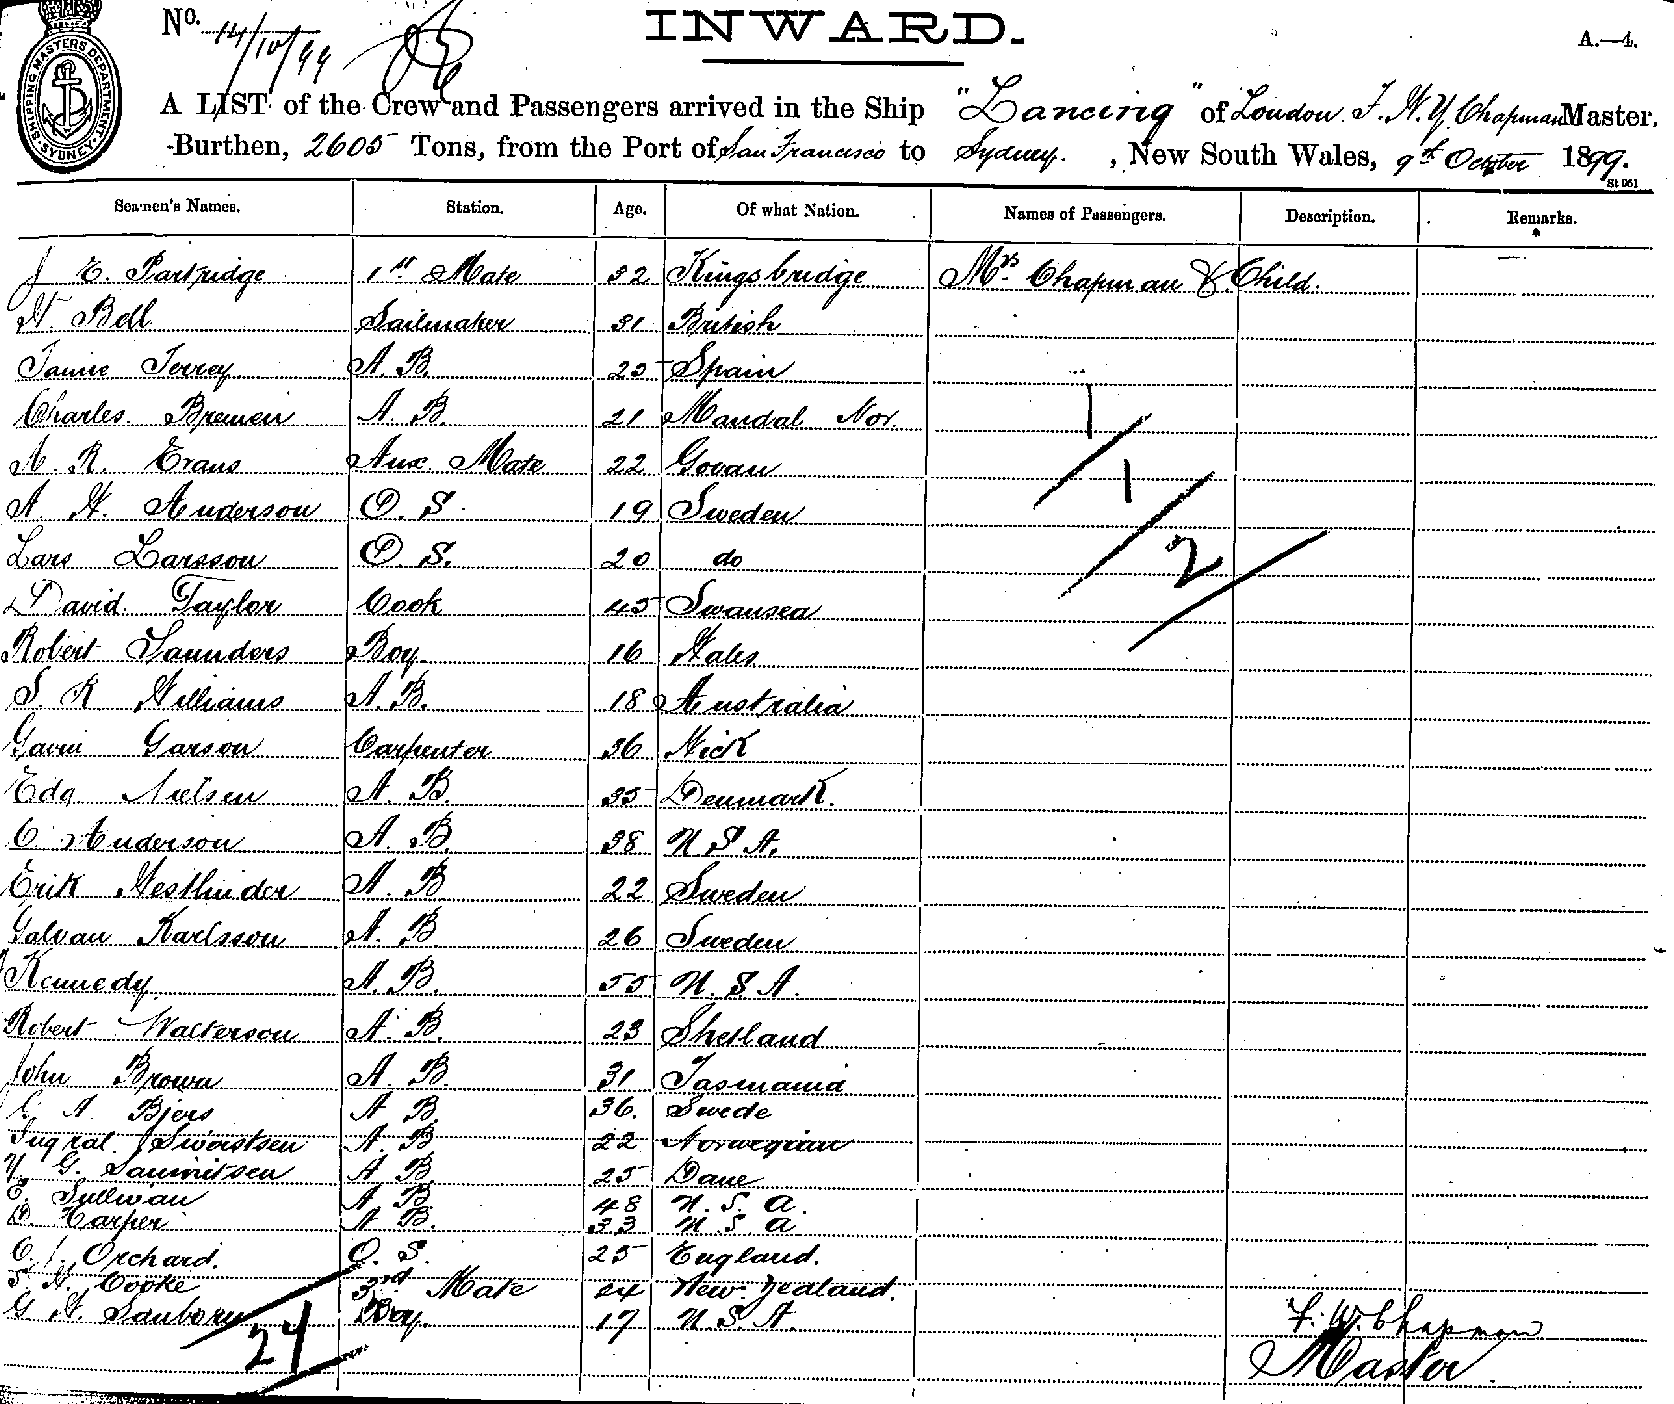 No. 14/10/99
INWARD.
A.—4.
SHIPPING MASTERS DEPARTMENT SYDNEY
A LIST of the Crew and Passengers arrived in the Ship "Lancing" of London F. W. Y. Chapman Master.
Burthen, 2605 Tons, from the Port of San Francisco to Sydney. , New South Wales, 9th October 1899.
St 951
Seamen's Names. Station. Age. Of what Nation. Names of Passengers. Description. Remarks.
J E. Partridge 1st Mate 32 Kingsbridge Mrs Chapman & Child.
W. Bell Sailmaker 31 British
Jamie Terrey A. B. 25 Spain
Charles Bremein A. B. 21 Mandal Nor. 1
A R. Evans Aux Mate 22 Govan 1
A. W. Anderson O. S. 19 Sweden
Lars Larsson O. S. 20 do 2
David Taylor Cook 45 Swansea
Robert Saunders Boy 16 Wales
S. R Williams A. B. 18 Australia
Gavin Garson Carpenter 36 Wick
Edq Nielsen A. B. 35 Denmark.
C Anderson A. B. 38 U S A.
Erik Westlinder A. B 22 Sweden
Galvan Karlsson A. B. 26 Sweden
Kennedy A. B. 55 U. S A.
Robert Walterson A. B. 23 Shetland
John Brown A. B 31 Tasmania
A Bjers A B 36. Swede
Sworstsen A. B 22 Norwegian
G. Saunitsen A B. 25 Dane
E. Sullivan A B 48 U. S. A.
D. Harper A B. 33 U S A
C. J. Orchard. O. S. 25 England.
F. W. Cooke 3rd Mate 24 New Zealand.
G A. Sanborn Boy. 17 U. S. A.
24
F. W. Chapman
Master